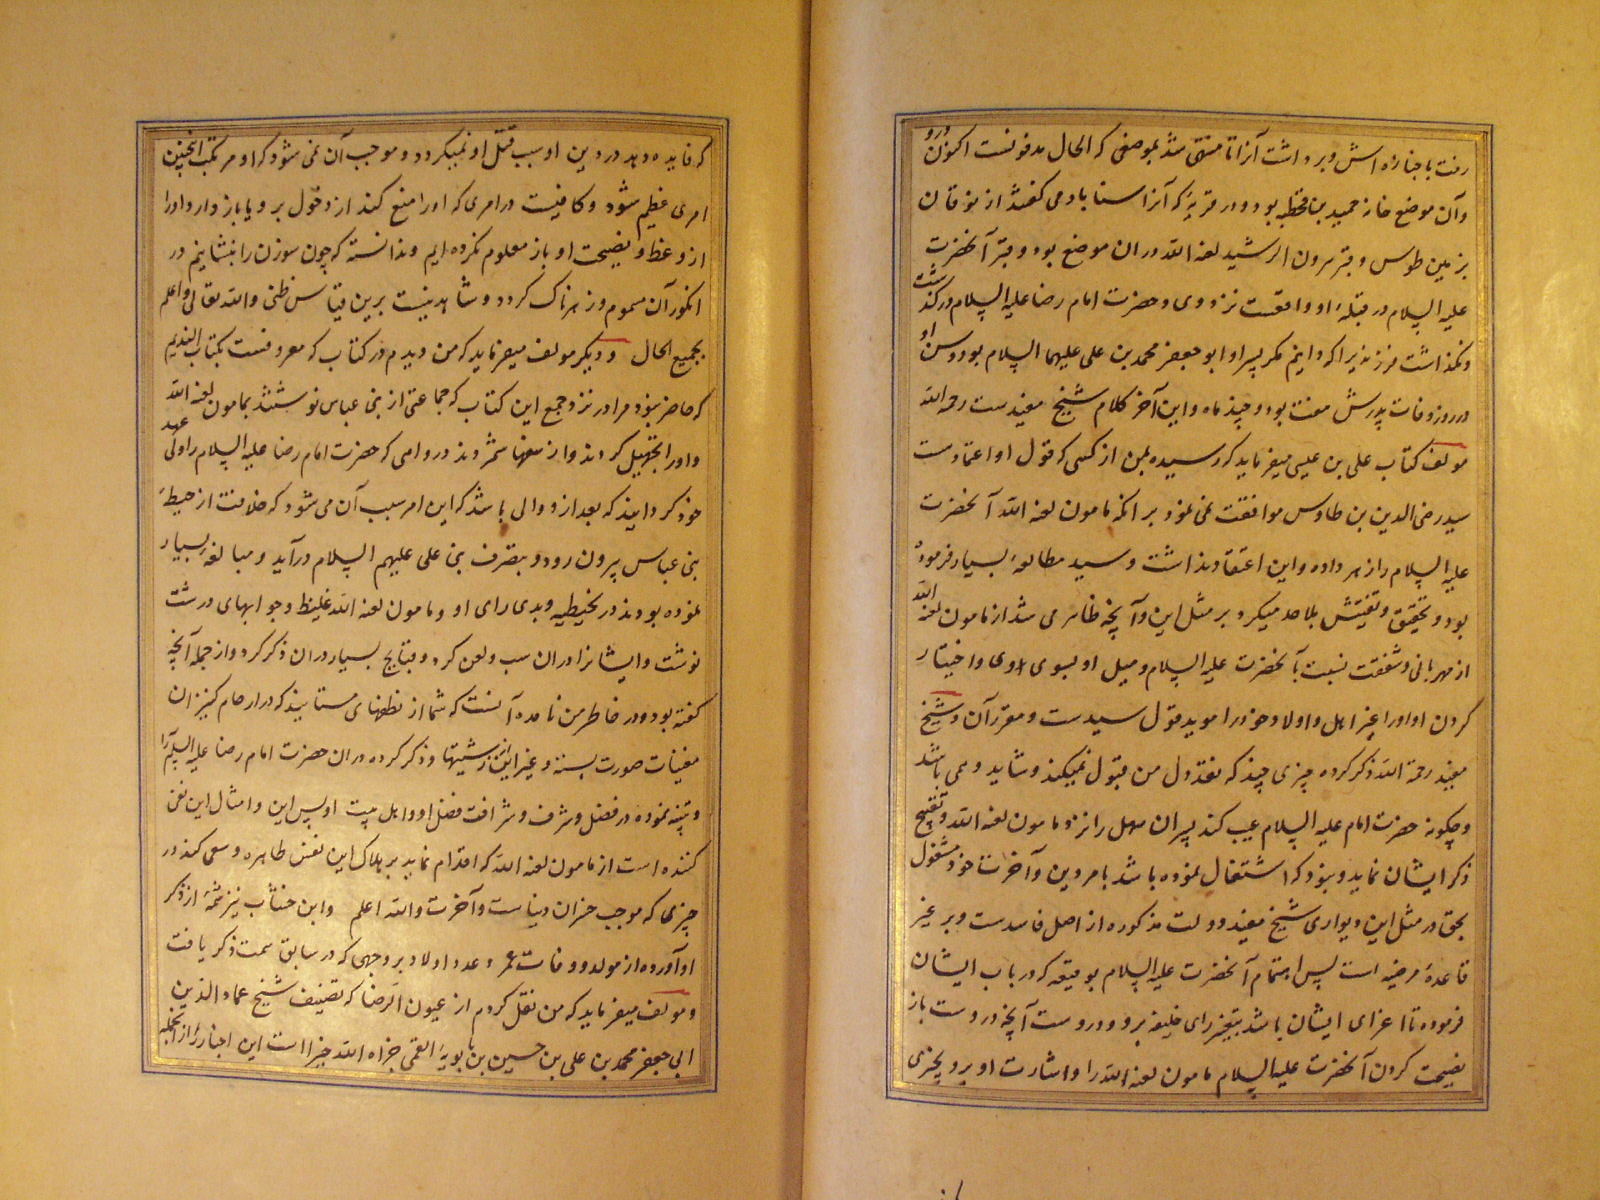 رفت با جنازه اش و برداشت آنرا تا منتهی شد بموضعی که الحال مدفونست اکنون درو
و آن موضع خانه حمید بن قحطبه بود و در قریهٔ که آنرا سناباد می کفتند از نوقان
بزمین طوس و قبر هرون الرشید لعنه الله در ان موضع بود و قبر آنحضرت
علیه السلام در قبلهٔ او واقعست نزد وی و حضرت امام رضا علیه السلام درکذشت
و نکذاشت فرزندیرا که دانیم مکر پسر او ابو جعفر محمد بن علی علیهما السلام بود و سن او
در روز وفات پدرش هفت بود و چند ماه و این آخر کلام شیخ مفیدست رحمه الله
مولف کتاب علی بن عیسی میفرماید که رسیده بمن از کسی که قول او اعتمادست
سید رضی الدین بن طاوس موافقت نمی نمود برانکه مامون لعنه الله آنحضرت
علیه السلام را زهر داده و این اعتقاد نداشت و سید مطالعهٔ بسیار فرموده
بود و تحقیق و تفتیش بلا حد میکرد بر مثل این و آنچه ظاهر می شد از مامون لعنه الله
از مهربانی و شفقت نسبت بآنحضرت علیه السلام و میل او بسوی اوی و اختیار
کردن او اورا غیر اهل و اولاد خود را موید قول سیدست و مقرر آن و شیخ
مفید رحمة الله ذکر کرده چیزی چند که نقد دل من قبول نمیکند و شاید وهمی باشد
و چکونه حضرت امام علیه السلام عیب کند پسران سهل را نزد مامون لعنه الله و تقبیح
ذکر ایشان نماید و بود که اشتغال نموده باشد بامر دین و آخرت خود و مشغول
بحق در مثل این و یرا و رای شیخ مفید دولت مذکوره از اصل فاسدست و بر غیر
قاعدهٔ مرضیه است پس اهتمام آنحضرت علیه السلام بوقیعه که در باب ایشان
فرموده تا اعزای ایشان باشد بتغییر رای خلیفه برو و دروست آنچه دروست باز
نصیحت کردن آنحضرت علیه السلام مامون لعنه الله را و اشارت او برو بچیزی
که فایده دهد در دین او سبب قتل او نمیکردد و موجب آن نمی شود که او مرتکب انچنین
امری عظیم شود و کافیست در امری که اورا منع کند از دخول برو یا باز دارد اورا
از وعظ و نصیحت او باز معلوم نکرده ایم و ندانسته که چون سوزن را بنشانیم در
انکور آن مسموم و زهرناک کردد و شاهد نیست برین قیاس ظنی والله تعالی اعلم
بجمیع الحال و دیکر مولف میفرماید که من دیدم در کتاب که معروفست بکتاب الندیم
که حاضر نبود مرا در نزد جمع این کتاب که جماعتی از بنی عباس نوشتند بمامون لعنه الله
و اورا تجهیل کردند و از سفها شمردند در وامی که حضرت امام رضا علیه السلام را ولی عهد
خود کردانید که بعد از و والی باشد که این امر سبب آن می شود که خلافت از حیطهٔ
بنی عباس بیرون رود و بتصرف بنی علی علیهم السلام درآید و مبالغه بسیار
نموده بودند در تخیطیه و بدی رای او و مامون لعنه الله غلیظ و جوابهای درشت
نوشت و ایشانرا دران سب و لعن کرد و قبایح بسیار دران ذکر کرد و از جمله آنچه
کفته بود و در خاطر من مانده آنست که شما از نطفهای مستانید که در ارحام کنیزان
مغنیات صورت بسته و غیر این از زشتیها و ذکر کرده دران حضرت امام رضا علیه السلام را
و تنبیه نموده در فضل و شرف و شرافت فضل او و اهل بیت او پس این و امثال این نفی
کننده است از مامون لعنه الله که اقدام نماید بر هلاک این نفس طاهره و سعی کند در
چیزی که موجب خسران دنیاست و آخرت والله اعلم و ابن خشاب نیز شمهٔ از ذکر
او آورده از مولد و وفات عمر و عدد اولاد بر وجهی که در سابق سمت ذکر یافت
و مولف میفرماید که من نقل کردم از عیون الرضا که تصنیف شیخ عماد الدین
ابی جعفر محمد بن علی بن حسین بن بابویه القمی جزاه الله خیرا است این اخبار را از انجمله